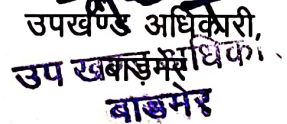 उपखण्ड अधिकारी,
बाड़मेर
उप खण्ड अधिका
बाडमेर